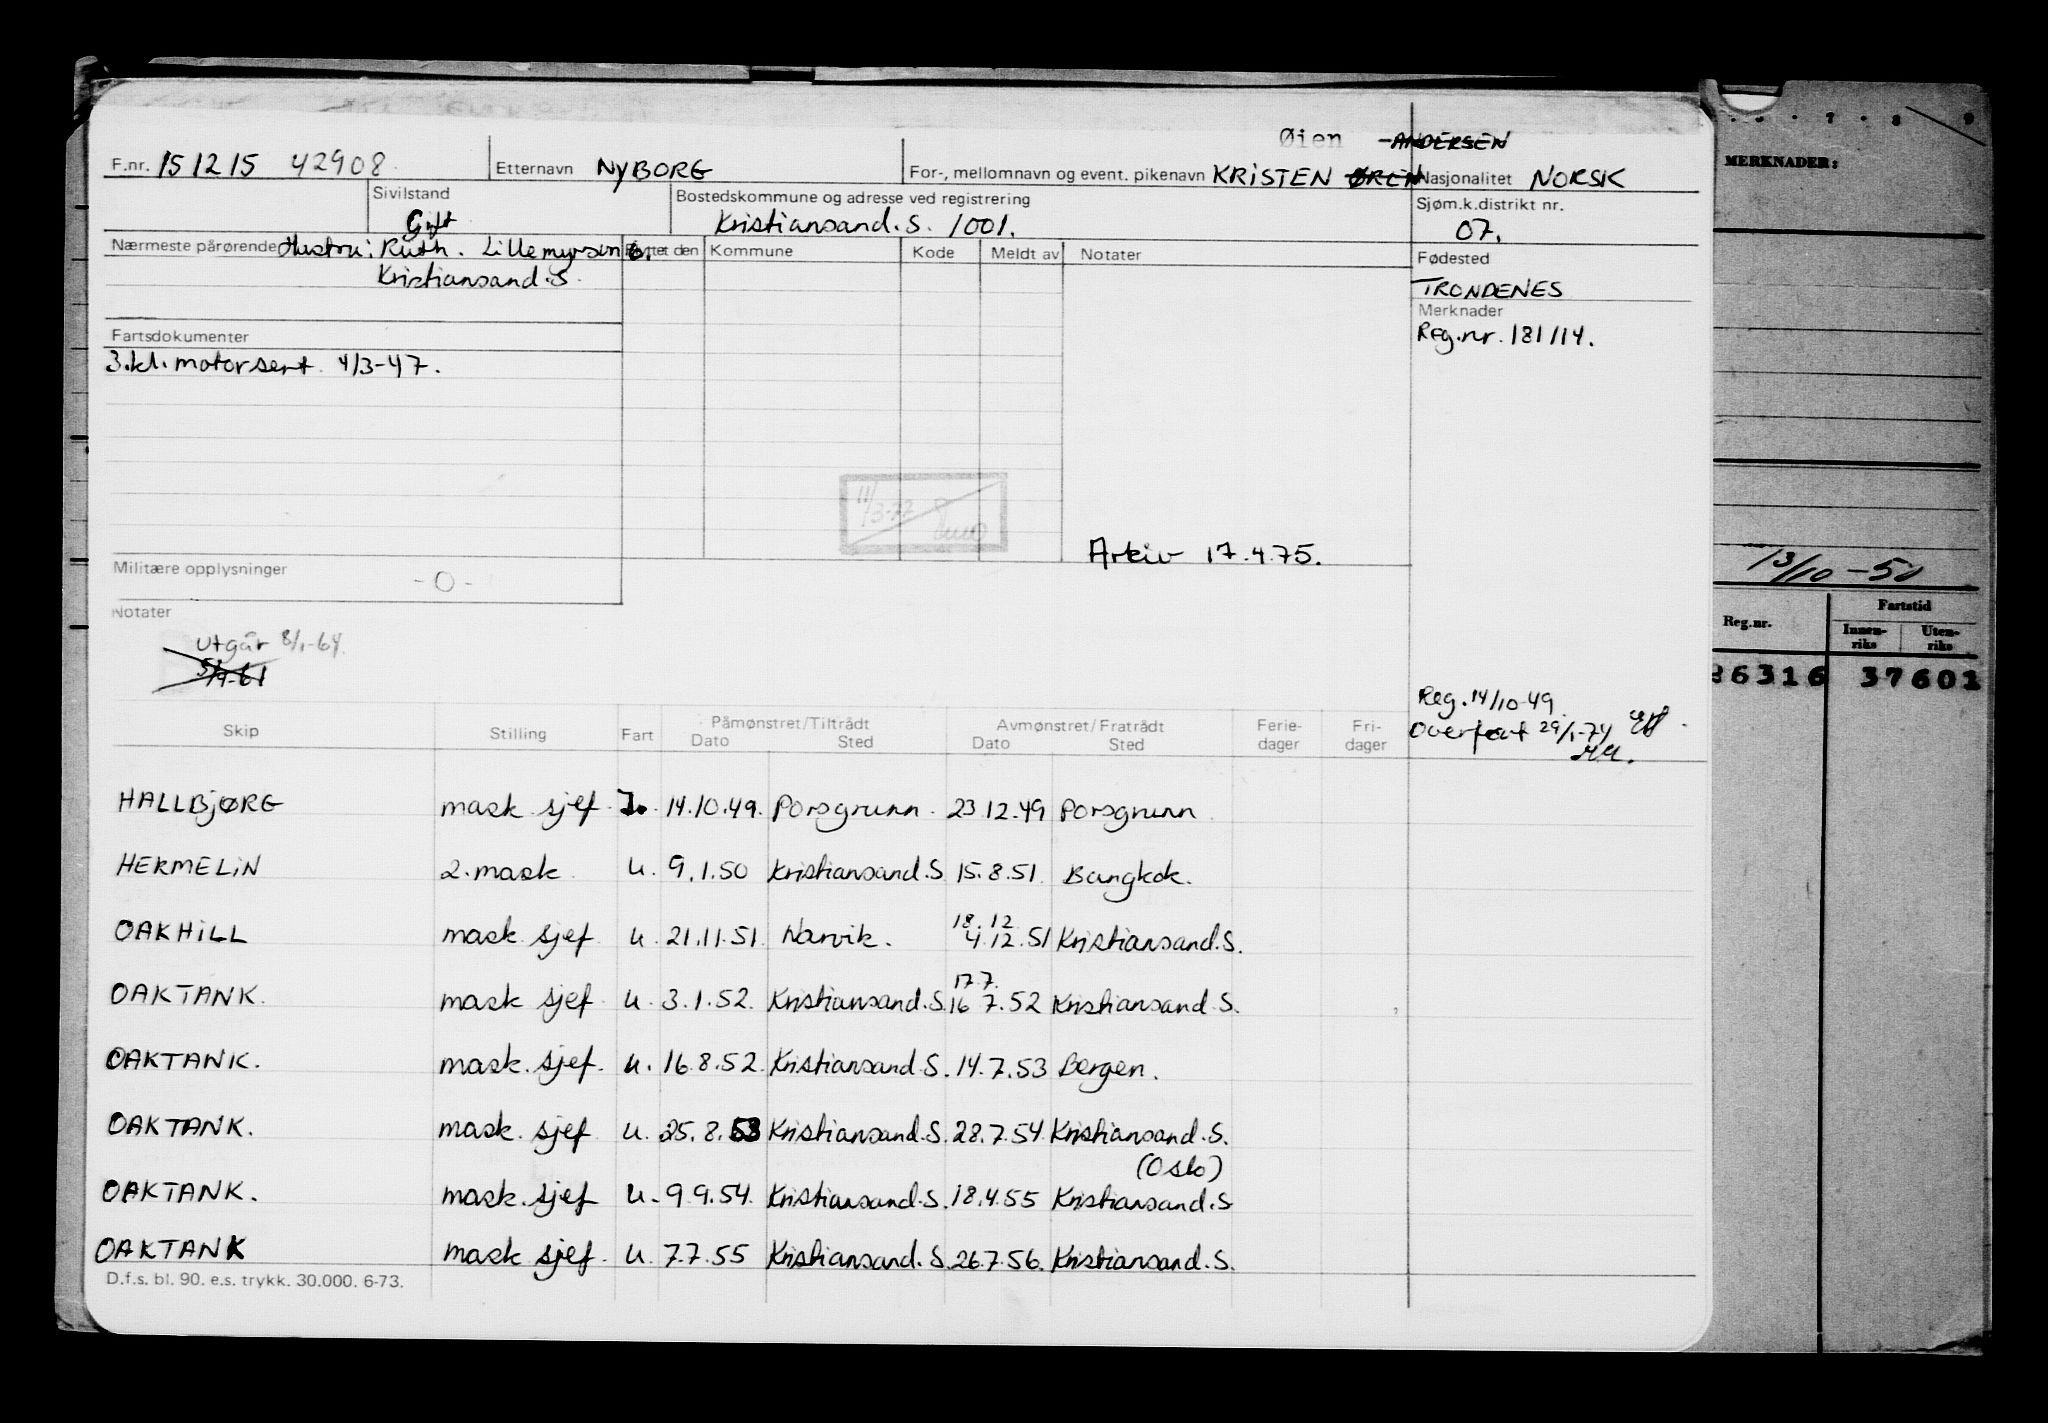 Øien -ANDERSEN
F.nr. 151215 42908. Etternavn NYBORG For-, mellomnavn og event. pikenavn KRISTEN ØREN Nasjonalitet NORSK
Sivilstand Gift
Bostedskommune og adresse ved registrering
Kristiansand.S. 1001.
Sjøm.k.distrikt nr.
07.
Nærmeste pårørende Hustru: Ruth. Lillemyrsen 6.
Kristiansand.S.
Flyttet den Kommune Kode Meldt av Notater
Fødested
TRONDENES
Merknader
Reg.nr. 181/14.
Fartsdokumenter
3.kl.motorsert. 4/3-47.
11/3-77
Arkiv 17.4.75.
Militære opplysninger -0-
Notater
utgår 8/1-64.
Reg. 14/10-49.
Overført 29/1-74
Skip Stilling Fart Påmønstret/Tiltrådt Dato Sted Avmønstret/Fratrådt Dato Sted Ferie-dager Fri-dager
HALLBJØRG mask sjef J. 14.10.49. Porsgrunn. 23.12.49 Porsgrunn.
HERMELIN 2.mask. u. 9.1.50 Kristiansand.S 15.8.51. Bangkok.
18.12
OAKHILL mask sjef u. 21.11.51. Narvik. 4.12.51 Kristiansand.S.
17.7.
OAKTANK. mask sjef u. 3.1.52. Kristiansand.S. 16 7.52 Kristiansand S.
OAKTANK. mask. sjef. u. 16.8.52. Kristiansand.S. 14.7.53 Bergen.
OAKTANK. mask. sjef u. 25.8.53 Kristiansand.S. 28.7.54. Kristiansand.S.
(Oslo)
OAKTANK. mask. sjef u. 9.9.54. Kristiansand.S. 18.4.55 Kristiansand.S
OAKTANK mask sjef. u. 7.7.55 Kristiansand.S. 26.7.56. Kristiansand.S.
D.f.s. bl. 90. e.s. trykk. 30.000. 6-73.
7 8 9
MERKNADER:
13/10-50
Reg.nr. Fartstid
Innen-riks Uten-riks
26316 37601